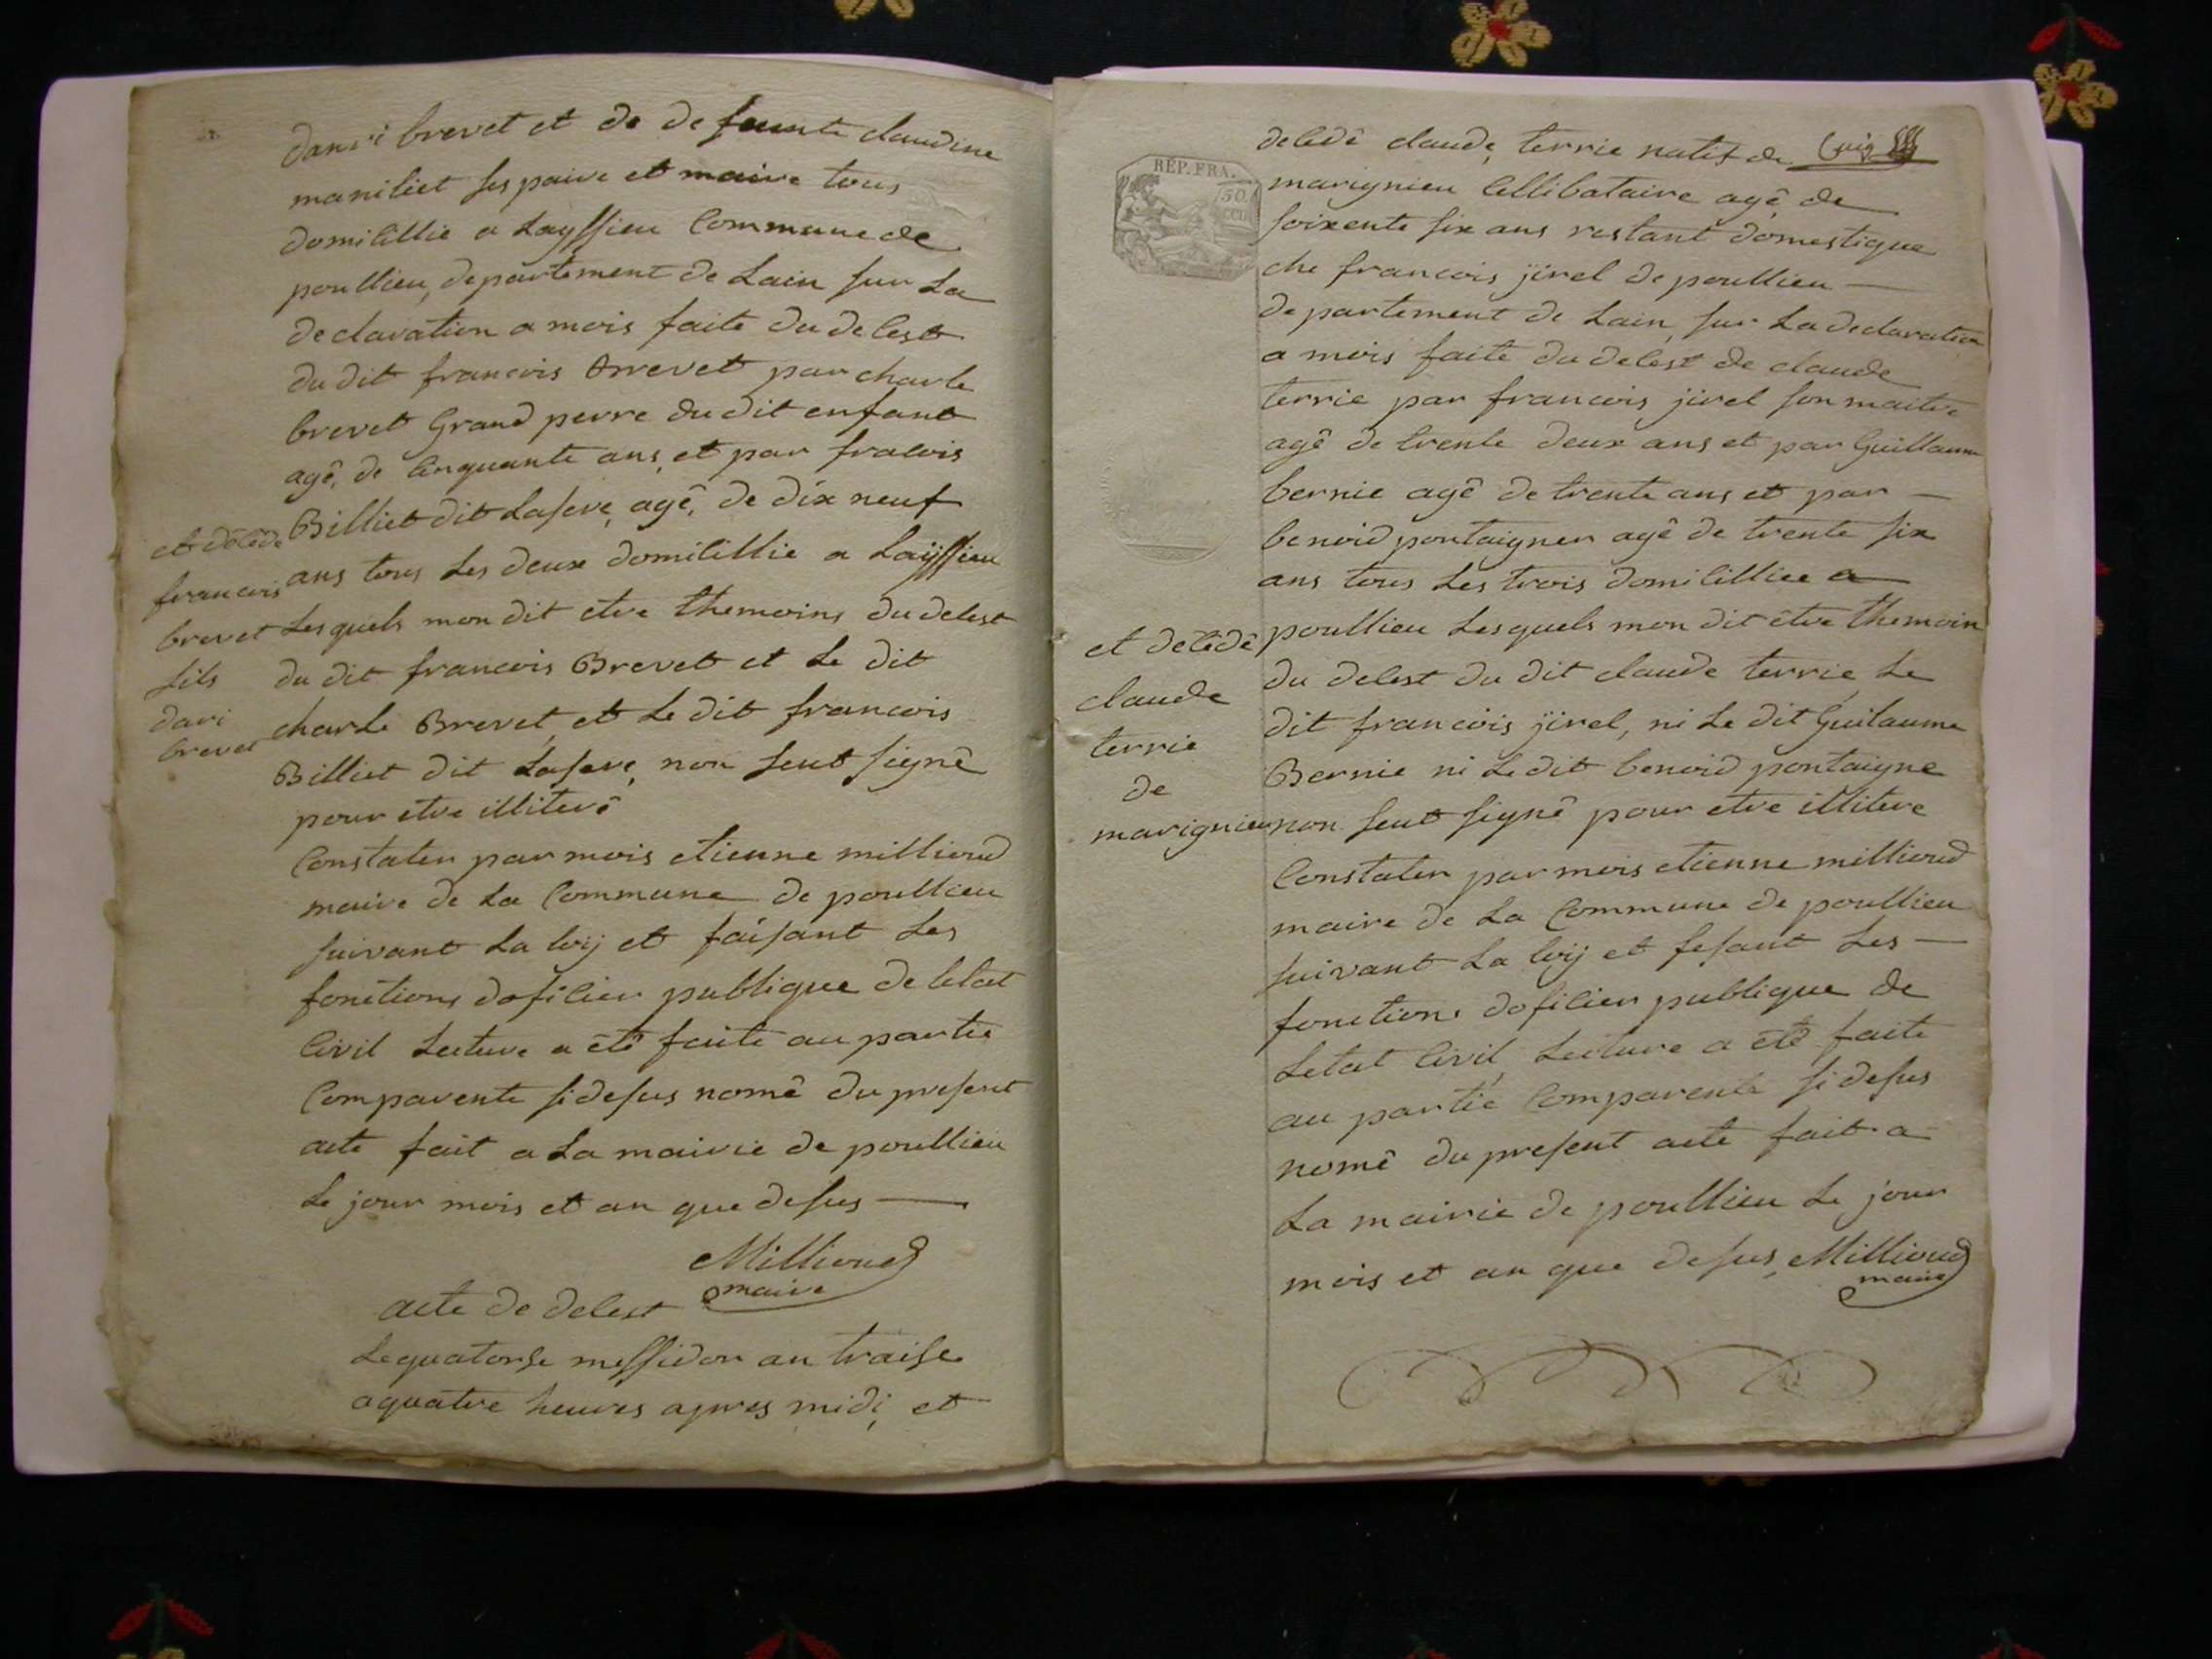 danri brevet et de defeunte claudine
maniliet ses paire et maire tous
domicillie a Layssieu Commune de
poullieu, departement de Lain sur La
declaration a mois faite du delest
du dit francois Brevet par charle
brevet Grand perre du dit enfant
agê, de Cinquante ans, et par fracois
Billiet dit Lafeve, agê, de dix neuf
ans tous Les deux domicillie a Layssieu
Lesquels mon dit etre themoins du delest
du dit francois Brevet et Le dit
charle Brevet, et Le dit francois
Billiet dit Lafeve, non seut signê
pour etre illiterê
Constater par mois etienne millioud
maire de La Commune de poullieu
suivant La loij et faisant Les
fonctions doficier publique de letat
Civil Lecture a êtê faite au partie
Comparente sidesus nomê du present
acte fait a La mairie de poullieu
Le jour mois et an que desus
Millioud
maire
et dêcêde
francois
brevet
fils
dari
brevet
acte de delest
Lequatorse messidor an traise
aquatre heures apres midi, et
RÉP. FRA.
50.
decêdê claude, terrie natif de
marignieu Cellibataire agê, de
soixente six ans restant domestique
che francois jirel de poullieu
departement de Lain, sur La declaration
a mois faite du delest de claude
terrie par francois jirel son maitre
agê de trente deux ans et par Guillaume
bernie agê de trente ans et par
benoid pontaignier agê de trente six
ans tous Les trois domicilliee a
poullieu Lesquels mon dit être themoin
du delest du dit claude terrie Le
dit francois jirel, ni Le dit Guilaume
Bernie ni Le dit benoid pontaigne
non seut signê pour etre illitere
Constater par mois etienne millioud
maire de La Commune de poullieu
suivant La loij et fesant Les
fonctions doficier publique de
Letat Civil, Lecture a êtê faite
au partie Comparente sidesus
nomê du present acte fait a
La mairie de poullieu Le jour
mois et an que desus, Millioud
maire
et dêcêdê
claude
terrie
de
marignieu